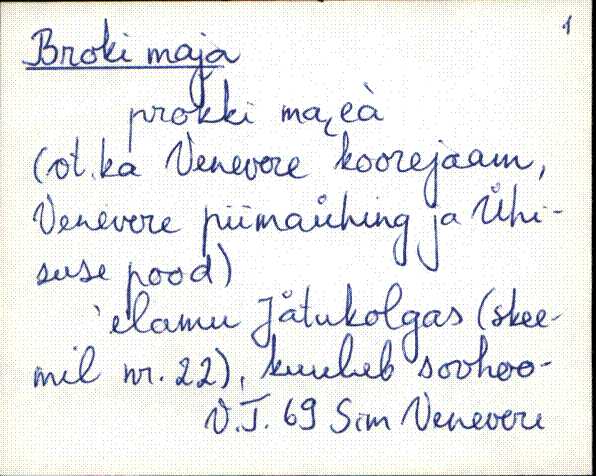 1
Broki maja
prokki maɀeà
(vt. ka Venevere koorejaam,
Venevere piimaühing ja Ühi-
suse pood)
`elamu Jätukolgas (skee-
mil nr. 22), kuulub sovhoo-
V.T. 69 Sim Venevere